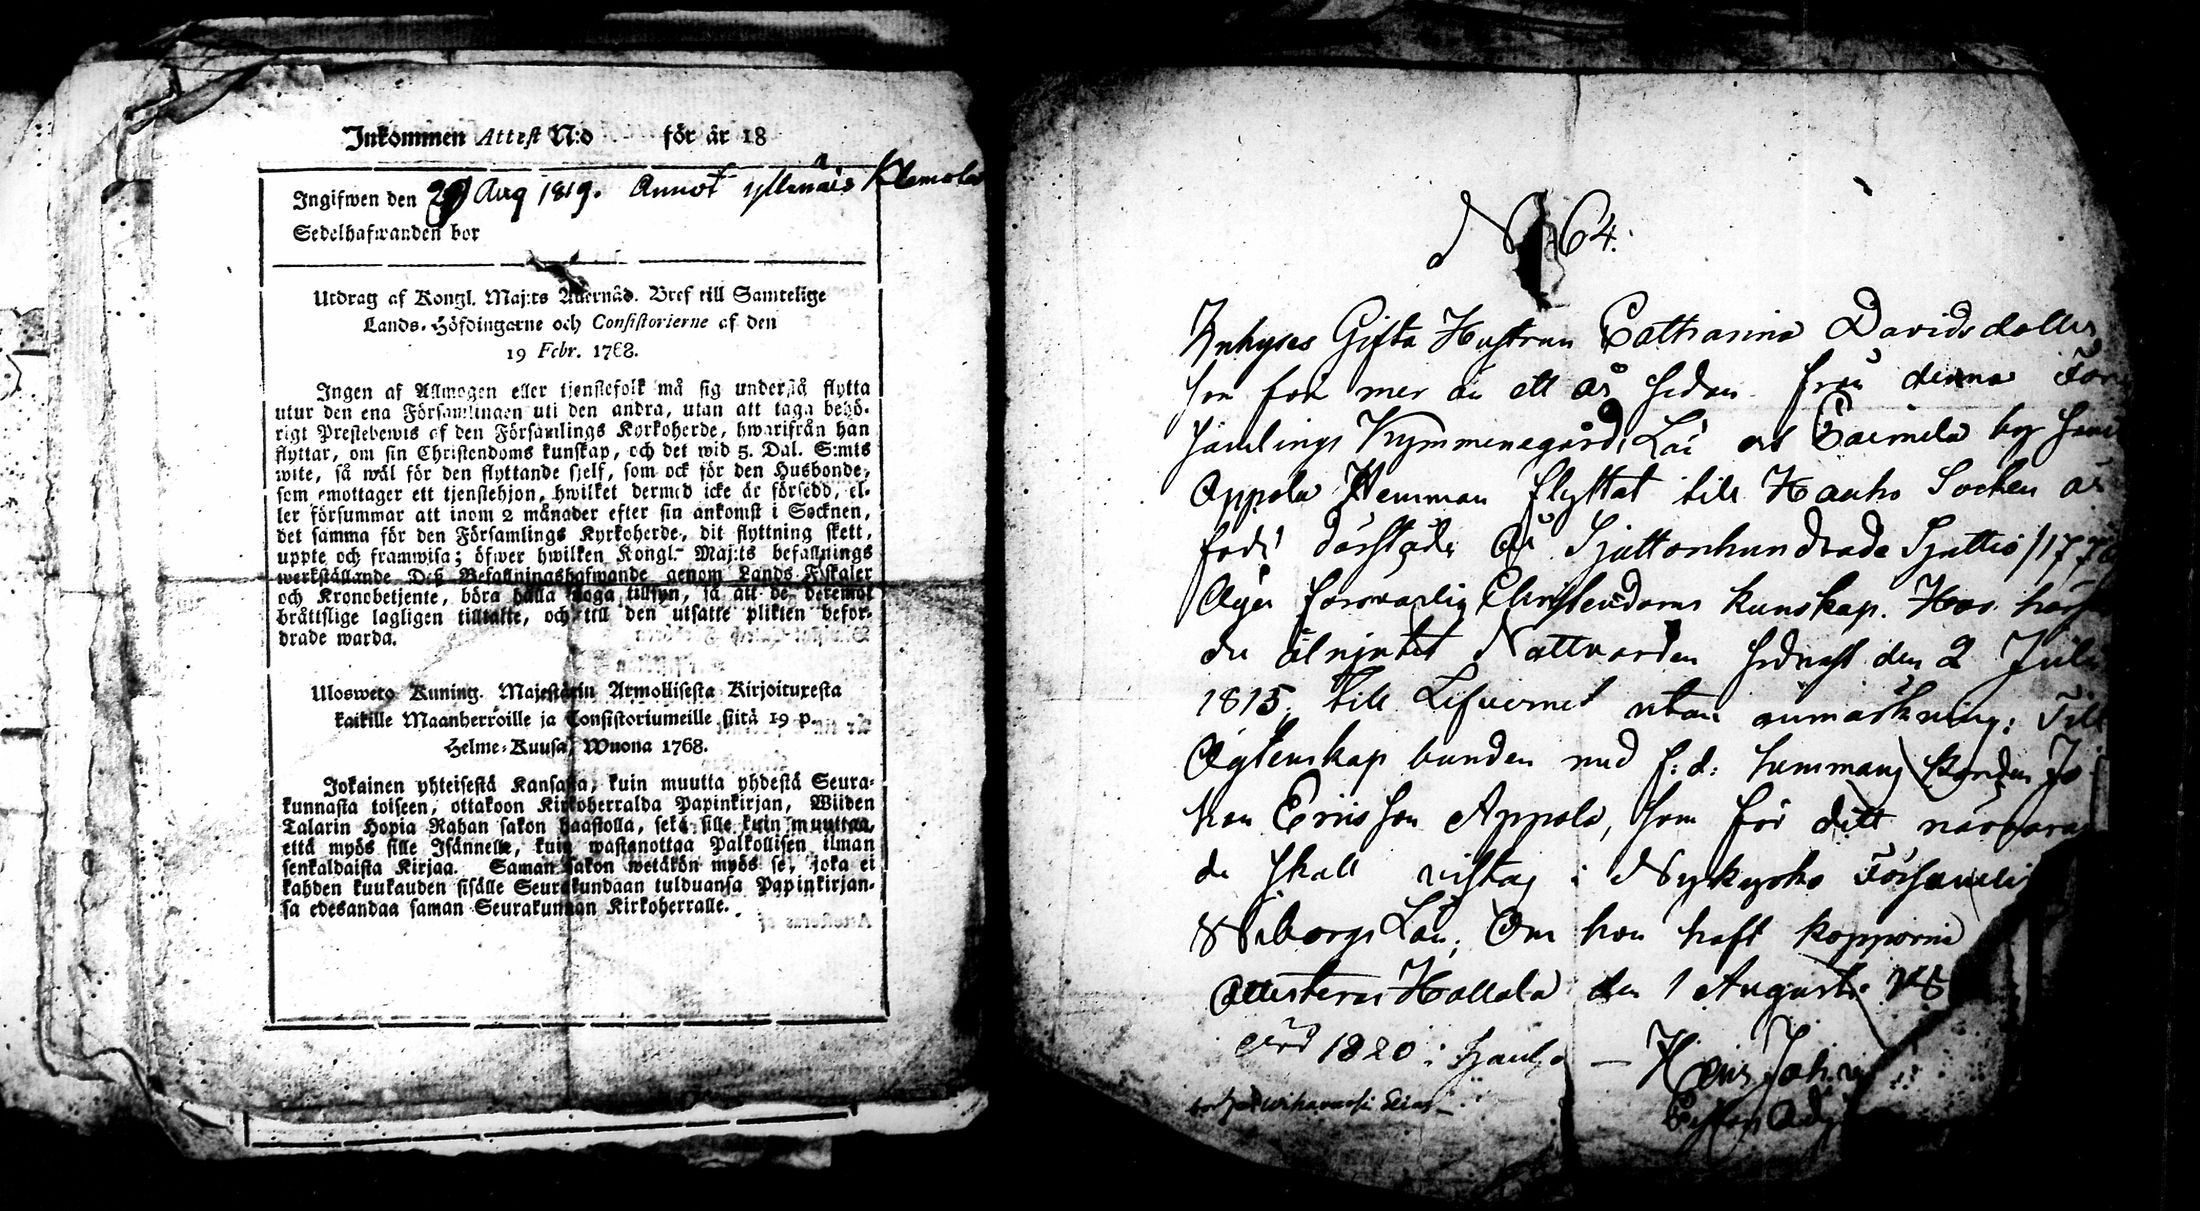 Inkommen Attest N:o för år 18
Ingifwen den 29 Aug 1819. Annot
Sedelhafwanden bor
Utdrag af Kongl. Maj:ts Allernåd. Bref till Samtelige
Lands-Höfdingarne och Consistorierne af den
19 Febr. 1768.
Ingen af Allmogen eller tjenstefolk må sig understå flytta
utur den ena Församlingen uti den andra, utan att taga behö-
rigt Prestebewis af den Församlings Kyrkoherde, hwarifrån han
flyttar, om sin Christendoms kunskap, och det wid 5. Dal. S:mts
wite, så wäl för den flyttande sjelf, som ock för den Husbonde,
som emottager ett tjenstehjon, hwilket dermed icke är försedd, el-
ler försummar att inom 2 månader efter sin ankomst i Socknen,
det samma för den Församlings Kyrkoherde, dit flyttning skett,
uppte och framwisa; öfwer hwilken Kongl. Maj:ts befallnings
werkställande Deß Befallningshafwande genom Lands-Fiskaler
och Kronobetjente, böra hålla noga tillsyn, så att de deremot
bråttslige lagligen tilltalte, och till den utsatte plikten befor-
drade warda.
Ulosweto Kuning. Majestätin Armollisesta Kirjoituxesta
kaikille Maanherroille ja Consistoriumeille siitä 19 p.
Helme-Kuusa Wuona 1768.
Jokainen yhteisestä Kansasta, kuin muutta yhdestä Seura-
kunnasta toiseen, ottakoon Kirkoherralda Papinkirjan, Wiiden
Talarin Hopia Rahan sakon haastolla, sekä sille kuin muuttaa,
että myös sille Isännelle, kuin wastanottaa Palkollisen ilman
senkaldaista Kirjaa. Saman sakon wetäkön myös se, joka ei
kahden kuukauden sisälle Seurakundaan tulduansa Papinkirjan-
sa edesandaa saman Seurakunnan Kirkoherralle.
N 64.
Inhyses Gifta Hustrun Catharina Davidsdotter
som för mer än ett år sedan från denna För
samlings Kymmenegårds Län och by
Appola Hemman flyttat till Hauho Socken är
född därstädes År Sjuttonhundrade Sjuttio /177
Äger försvarlig Christendoms kunskap. Har här
de åtnjutit Nattvarden sednast den 2 Juli
1815, till Lefvernet utan anmärkning: Till
Ägtenskap bunden med f: d: Jo
han Ericsson Appola, som för ditt närvaran
de skall vistas i Nykyrko Församling
Wiborgs Län; Om hon haft kopporne
Attesteras Hollola den 1 Augusti
1820 i Hauho